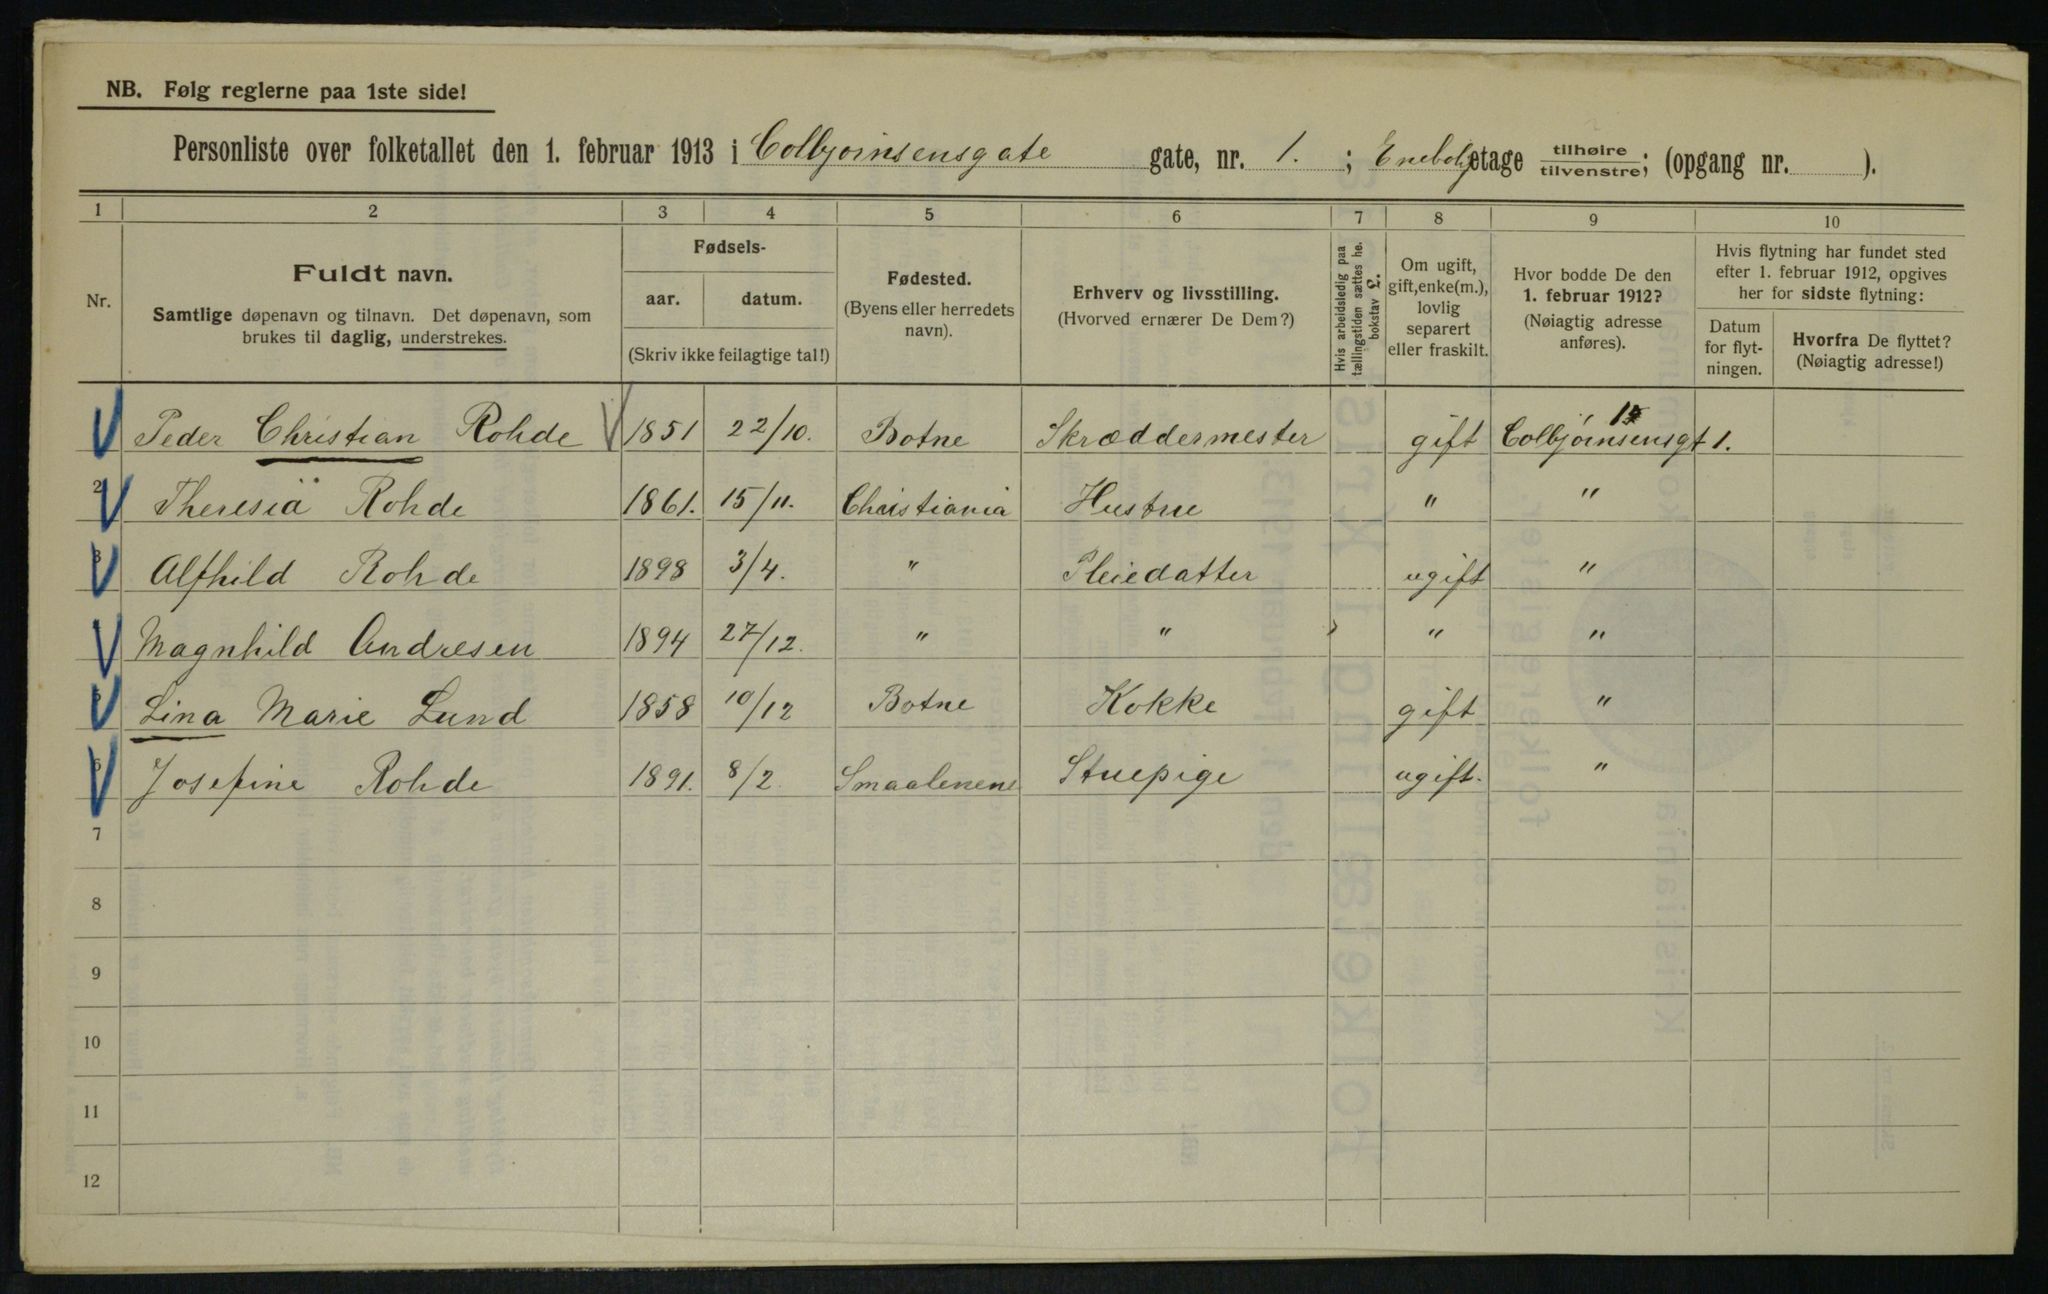 NB. Følg reglerne paa 1ste side!
Personliste over folketallet den 1. februar 1913 i Colbjørnsensgate gate, nr. 1. ; Enebolig etage tilhøire/tilvenstre; (opgang nr. ).
1 2 3 4 5 6 7 8 9 10
Nr.
Fuldt navn.
Samtlige døpenavn og tilnavn. Det døpenavn, som
brukes til daglig, understrekes.
Fødsels-
aar. datum.
(Skriv ikke feilagtige tal!)
Fødested.
(Byens eller herredets
navn).
Erhverv og livsstilling.
(Hvorved ernærer De Dem?)
Hvis arbeidsledig paa
tællingstiden sættes he.
bokstav L.
Om ugift,
gift, enke(m.),
lovlig
separert
eller fraskilt.
Hvor bodde De den
1. februar 1912?
(Nøiagtig adresse
anføres).
Hvis flytning har fundet sted
efter 1. februar 1912, opgives
her for sidste flytning:
Datum
for flyt-
ningen.
Hvorfra De flyttet?
(Nøiagtig adresse!)
Peder Christian Rohde 1851 22/10. Botne Skræddermester gift Colbjørnsensgt 1.
2 Theresia Rohde 1861. 15/11. Christiania Hustru " "
3 Alfhild Rohde 1898 3/4. " Pleiedatter ugift "
Magnhild Andresen 1894 27/12. " " " "
5 Lina Marie Lund 1858 10/12 Botne Kokke gift "
6 Josefine Rohde 1891. 8/2 Smaalenene Stuepige ugift. "
7
8
9
10
11
12